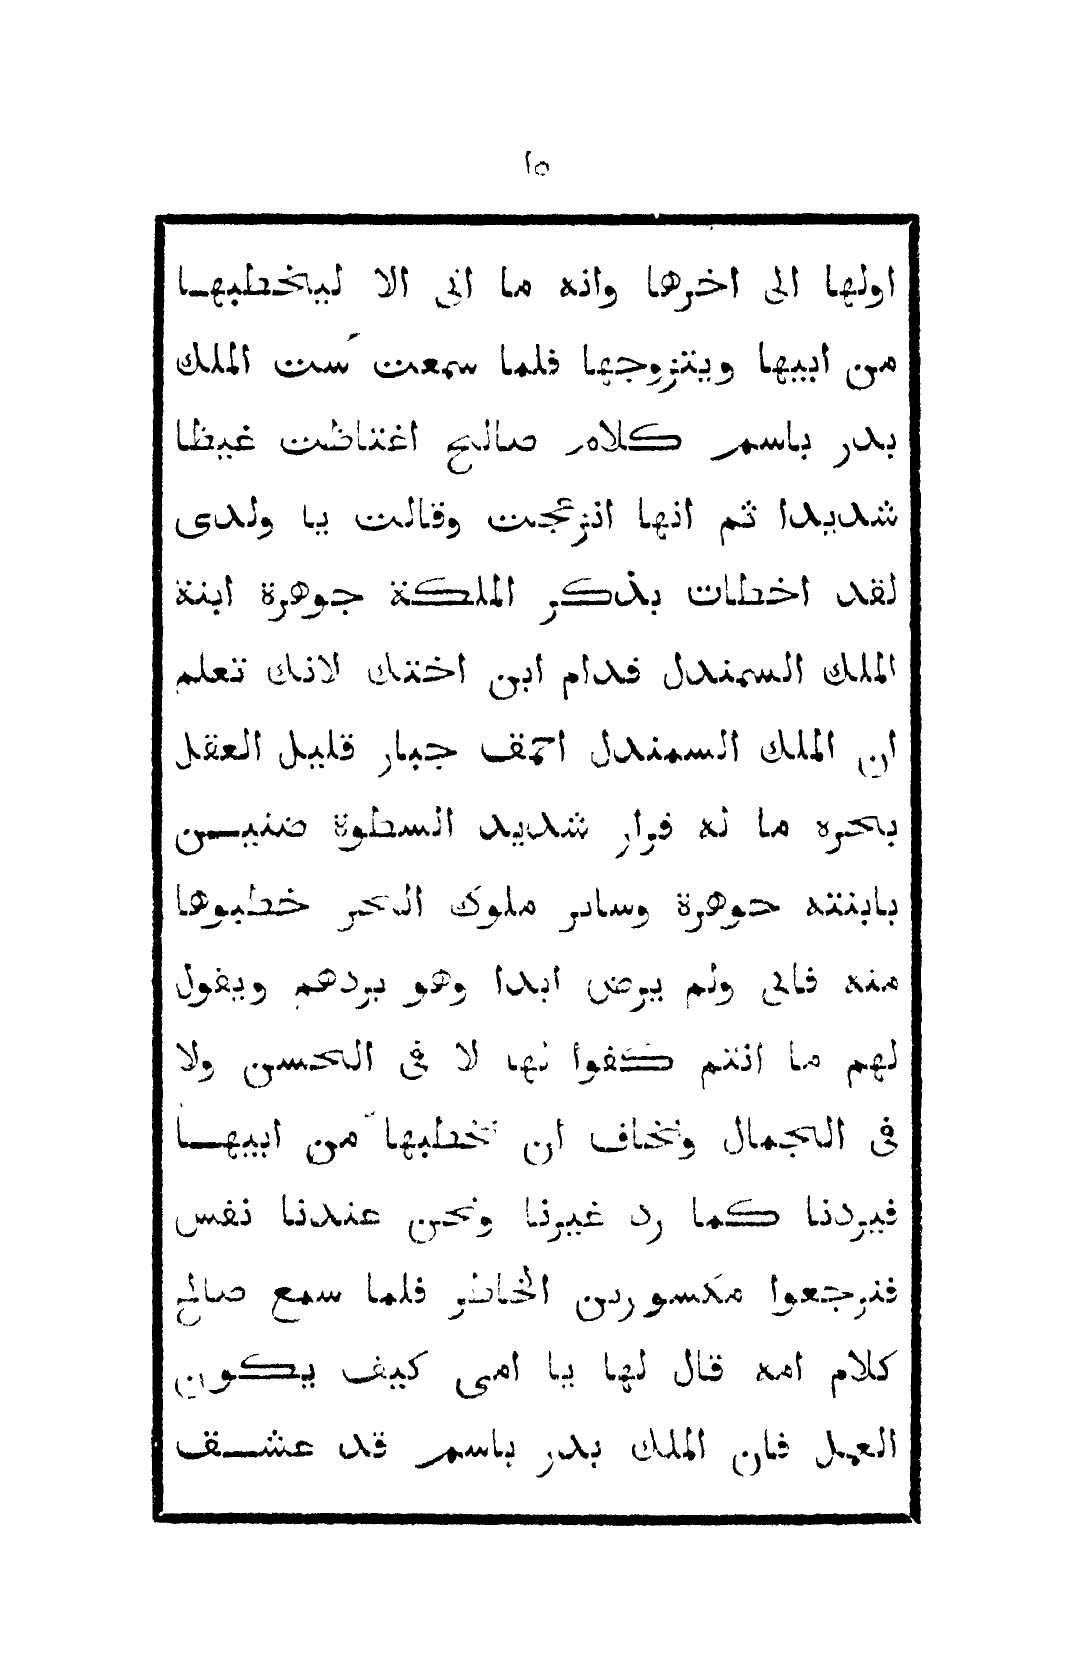 ١٥
اولها الى اخرها وانه ما اتى الا ليخطبهـا
من ابيها ويتزوجها فلما سمعت ست الملك
بدر باسم كلام صالح اغتاظت غيظا
شديدا ثم انها انزعجت وقالت يا ولدى
لقد اخطات بذكر الملكة جوهرة ابنة
الملك السمندل قدام ابن اختك لانك تعلم
ان الملك السمندل احمق جبار قليل العقل
بحره ما له قرار شديد السطوة ضنيـن
بابنته جوهرة وساير ملوك البحر خطبوها
منه فابى ولم يرض ابدا وهو يردهم ويقول
لهم ما انتم كفوا لها لا فى الحسن ولا
فى الجمال ونخاف ان نخطبها من ابيهـا
فيردنا كما رد غيرنا ونحن عندنا نفس
فنرجعوا مكسورين الخاطر فلما سمع صالح
كلام امه قال لها يا امى كيف يكون
العمل فان الملك بدر باسم قد عشـق